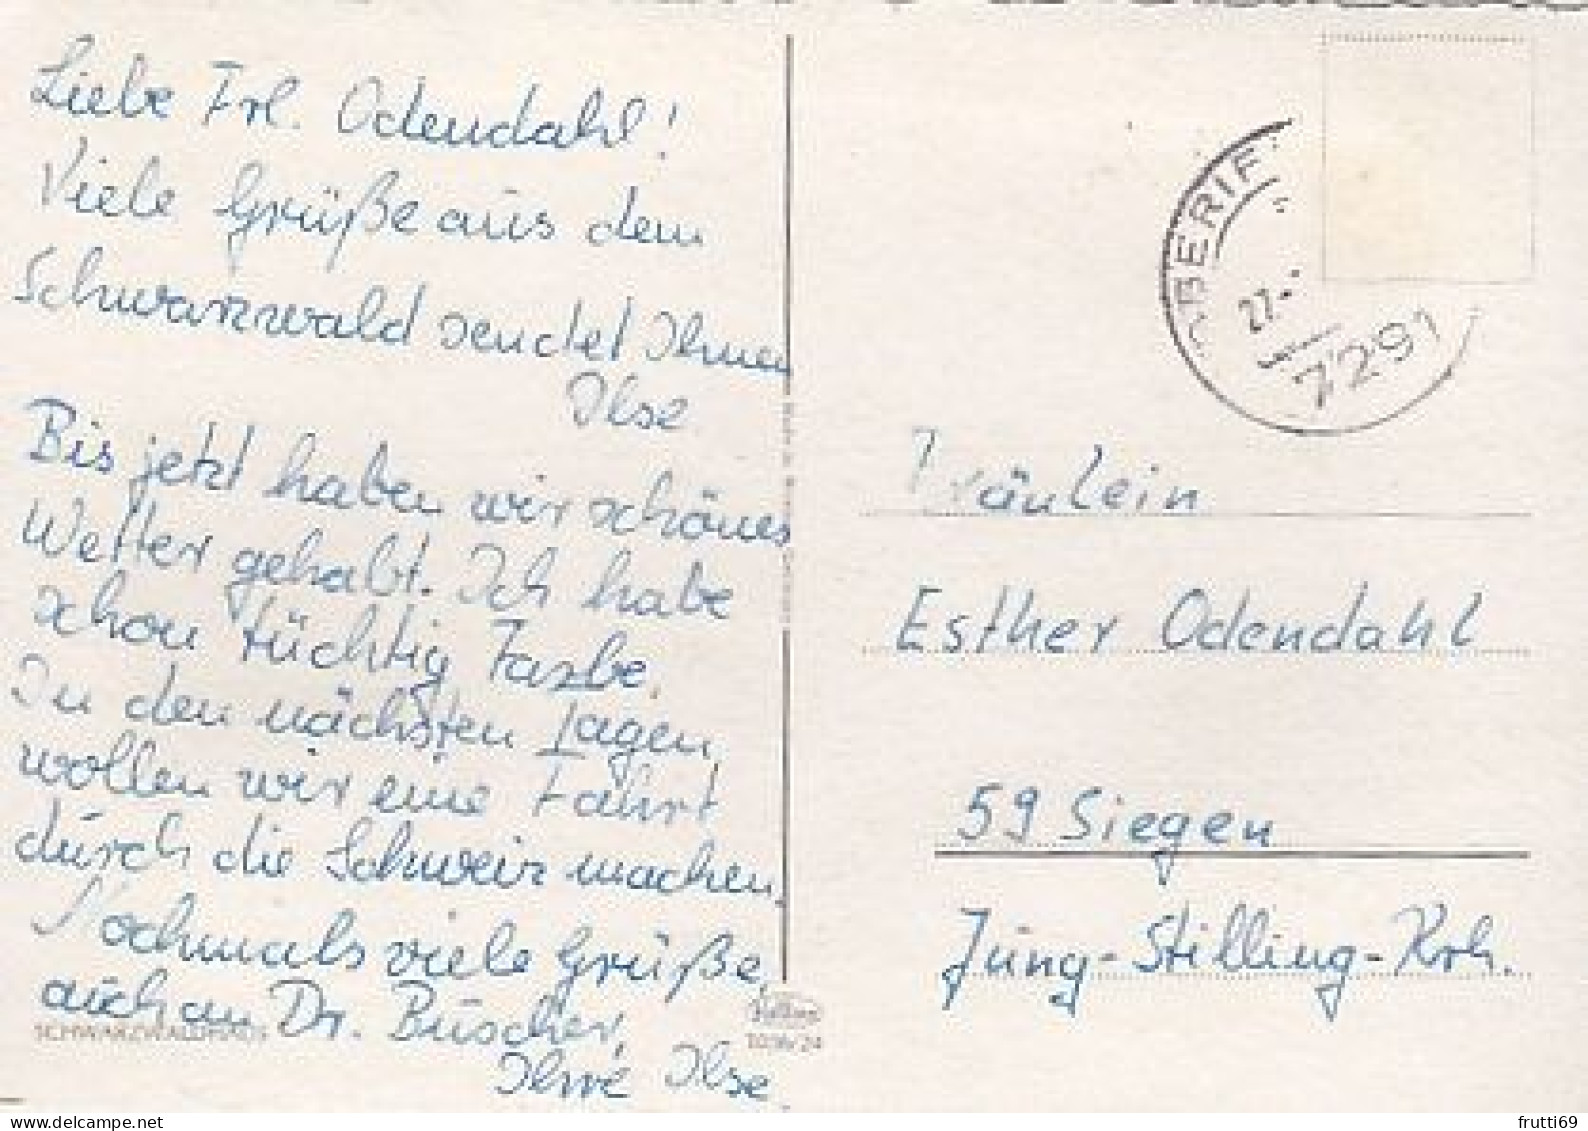 Liebe Frl. Odendahl!
Viele Grüße aus dem
Schwarzwald sendet Ihnen
Ilse
Bis jetzt haben wir schönes
Wetter gehabt. Ich habe
schon tüchtig Farbe.
In den nächsten Tagen
wollen wir eine Fahrt
durch die Schweiz machen.
Nochmals viele Grüße,
auch an Dr. Büscher,
Ihre Ilse
SCHWARZWALDHAUS
OBERIF
27.
7291
Fräulein
Esther Odendahl
59 Siegen
Jung-Stilling-Krh.
frutti69